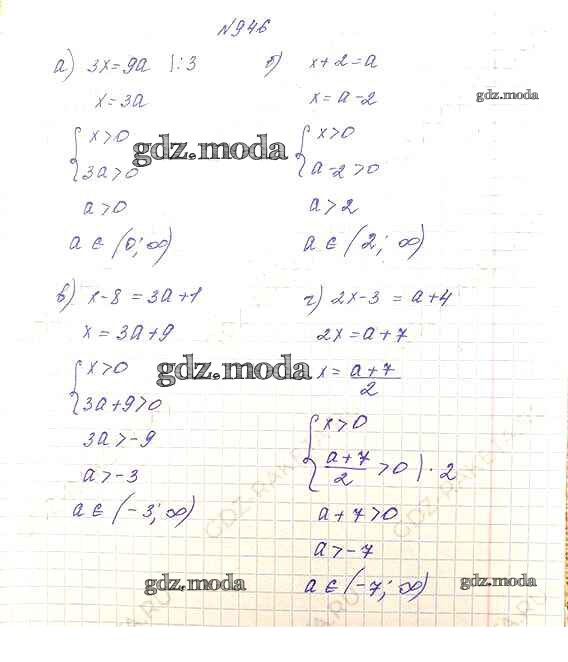 №946
а) 3x=9a |:3
x=3a
{ x>0
3a>0
a>0
a ∈ (0; ∞)
б) x+2=a
x=a-2
{ x>0
a-2>0
a>2
a ∈ (2; ∞)
в) x-8=3a+1
x=3a+9
{ x>0
3a+9>0
3a>-9
a>-3
a ∈ (-3; ∞)
г) 2x-3=a+4
2x=a+7
x=(a+7)/2
{ x>0
(a+7)/2 >0 |·2
a+7>0
a>-7
a∈(-7; ∞)
gdz.moda
gdz.moda
gdz.moda
gdz.moda
gdz.moda